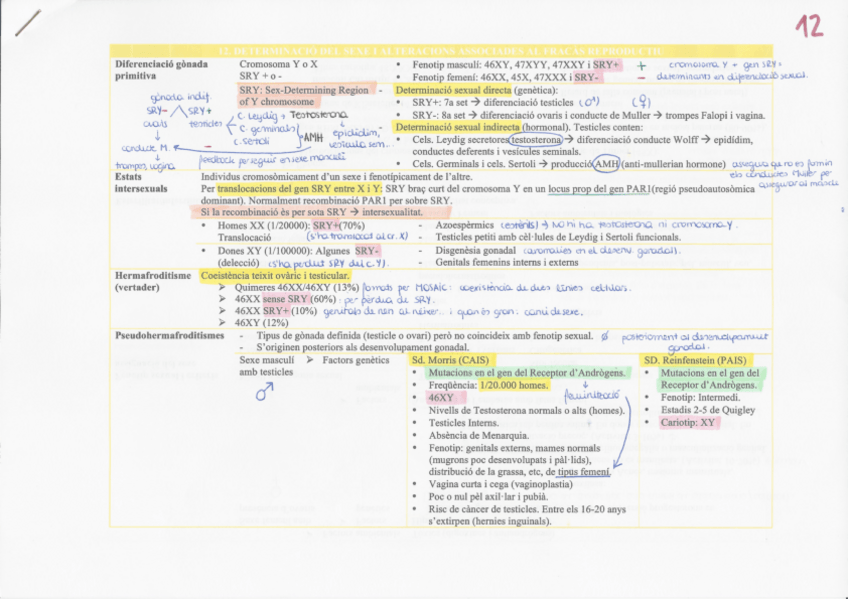 12
12. DETERMINACIÓ DEL SEXE I ALTERACIONS ASSOCIADES AL FRACÀS REPRODUCTIU
Diferenciació gònada primitiva
Cromosoma Y o X
SRY + o -
SRY: Sex-Determining Region
of Y chromosome
gònada indif.
SRY- SRY+
ovaris testicles
C. Leydig → Testosterona
C. germinals
C. Sertoli
AMH
epidídim,
vesícula sem...
conducte M.
trompes, vagina
feedback per seguir en sexe masculí
• Fenotip masculí: 46XY, 47XYY, 47XXY i SRY+
• Fenotip femení: 46XX, 45X, 47XXX i SRY-
+ cromosoma Y + gen SRY:
- determinants en diferenciació sexual.
Determinació sexual directa (genètica):
• SRY+: 7a set → diferenciació testicles (♂)
(♀)
• SRY-: 8a set → diferenciació ovaris i conducte de Muller → trompes Falopi i vagina.
Determinació sexual indirecta (hormonal). Testicles conten:
• Cels. Leydig secretores testosterona → diferenciació conducte Wolff → epidídim,
conductes deferents i vesícules seminals.
• Cels. Germinals i cels. Sertoli → producció AMH (anti-mullerian hormone)
assegura que no es formin
els conductes Muller per
assegurar al mascle
Estats intersexuals
Individus cromosòmicament d'un sexe i fenotípicament de l'altre.
Per translocacions del gen SRY entre X i Y: SRY braç curt del cromosoma Y en un locus prop del gen PAR1(regió pseudoautosòmica
dominant). Normalment recombinació PAR1 per sobre SRY.
Si la recombinació és per sota SRY → intersexualitat.
• Homes XX (1/20000): SRY+(70%)
Translocació (s'ha translocat al cr. X)
- Azoospèrmics (estèrils) → No hi ha testosterona ni cromosoma Y.
- Testicles petiti amb cèl·lules de Leydig i Sertoli funcionals.
• Dones XY (1/100000): Algunes SRY-
(delecció) (s'ha perdut SRY del c. Y).
- Disgenèsia gonadal (anomalies en el desenv. gonadal).
- Genitals femenins interns i externs
Hermafroditisme (vertader)
Coeistència teixit ovàric i testicular.
➢ Quimeres 46XX/46XY (13%) formats per MOSAIC: coexistència de dues línies cel·lulars.
➢ 46XX sense SRY (60%) : per pèrdua de SRY.
➢ 46XX SRY+ (10%) genitals de nen al néixer... i quan és gran: canvi de sexe.
➢ 46XY (12%)
Pseudohermafroditismes
- Tipus de gònada definida (testicle o ovari) però no coincideix amb fenotip sexual.
- S'originen posteriors als desenvolupament gonadal.
posteriorment al desenvolupament
gonadal.
Sexe masculí
amb testicles
♂
➢ Factors genètics
Sd. Morris (CAIS)
• Mutacions en el gen del Receptor d'Andrògens.
• Freqüència: 1/20.000 homes.
• 46XY
feminització
• Nivells de Testosterona normals o alts (homes).
• Testicles Interns.
• Absència de Menarquia.
• Fenotip: genitals externs, mames normals
(mugrons poc desenvolupats i pàl·lids),
distribució de la grassa, etc, de tipus femení.
• Vagina curta i cega (vaginoplastia)
• Poc o nul pèl axil·lar i pubià.
• Risc de càncer de testicles. Entre els 16-20 anys
s'extirpen (hernies inguinals).
SD. Reinfenstein (PAIS)
• Mutacions en el gen del
Receptor d'Andrògens.
• Fenotip: Intermedi.
• Estadis 2-5 de Quigley
• Cariotip: XY